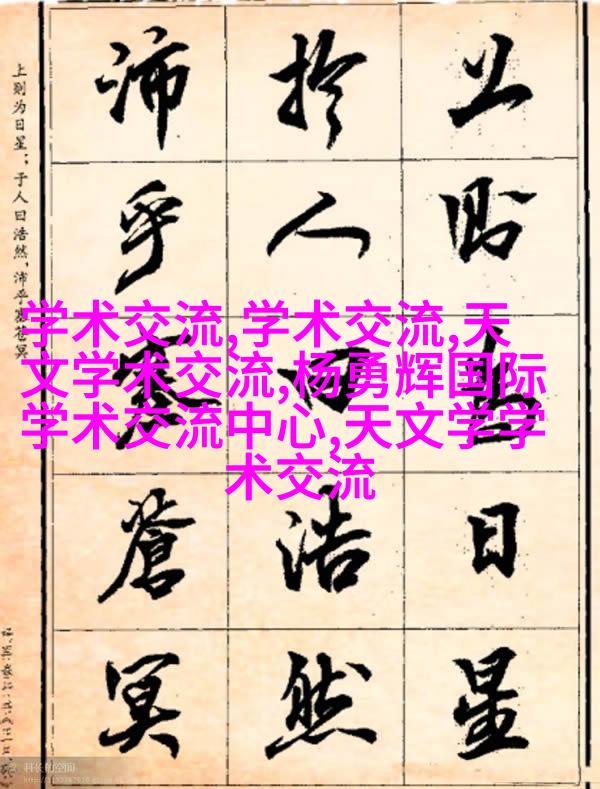 上則為日星
於人曰浩然
沛乎塞蒼冥
上则为日星；于人曰浩然，沛乎塞苍冥
学术交流,学术交流,天
文学术交流,杨勇辉国际
学术交流中心,天文学学
术交流
科长的空间